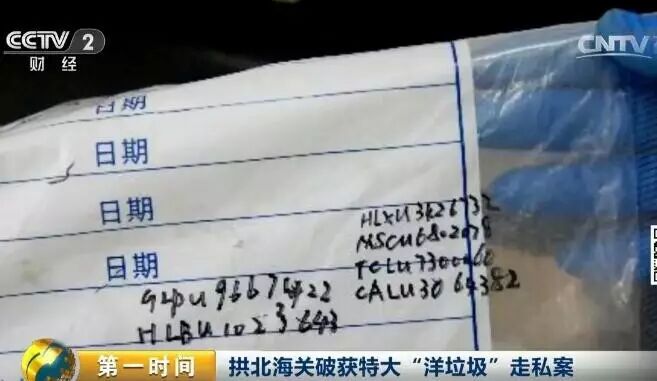 CCTV 2
财经
CNTV
日期
日期
日期
日期
HLXU3626732
MSCU6802078
CALU3064382
HLBU1023643
第一时间
拱北海关破获特大“洋垃圾”走私案